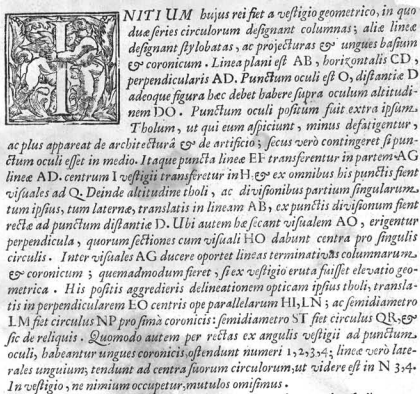 INITIUM hujus rei fiet a vestigio geometrico, in quo
duæ series circulorum designant columnas; aliæ lineæ
designant stylobatas, ac projecturas & ungues basium
& coronicum. Linea plani est AB, horizontalis CD,
perpendicularis AD. Punctum oculi est O, distantiæ D
adeoque figura hæc debet habere supra oculum altitudi-
nem DO. Punctum oculi positum fuit extra ipsum
Tholum, ut qui eum aspiciunt, minus defatigentur,
ac plus appareat de architecturâ & de artificio; secus verò contingeret si pun-
ctum oculi esset in medio. Itaque puncta lineæ EF transferentur in partem AG
lineæ AD. centrum I vestigii transferetur in H: & ex omnibus his punctis fient
visuales ad Q. Deinde altitudine tholi, ac divisionibus partium singularum
tum ipsius, tum laternæ, translatis in lineam AB, ex punctis divisionum fient
rectæ ad punctum distantiæ D. Ubi autem hæ secant visualem AO, erigentur
perpendicula, quorum sectiones cum visuali HO dabunt centra pro singulis
circulis. Inter visuales AG ducere oportet lineas terminativas columnarum
& coronicum; quemadmodum fieret, si ex vestigio eruta fuisset elevatio geo-
metrica. His positis aggredieris delineationem opticam ipsius tholi, transla-
tis in perpendicularem EO centris ope parallelarum HI, LN; ac semidiametro
LM fiet circulus NP pro simâ coronicis: semidiametro ST fiet circulus QR, &
sic de reliquis. Quomodo autem per rectas ex angulis vestigii ad punctum
oculi, habeantur ungues coronicis, ostendunt numeri 1, 2, 3, 4; lineæ verò late-
rales unguium, tendunt ad centra suorum circulorum, ut videre est in N 3, 4.
In vestigio, ne nimium occupetur, mutulos omisimus.